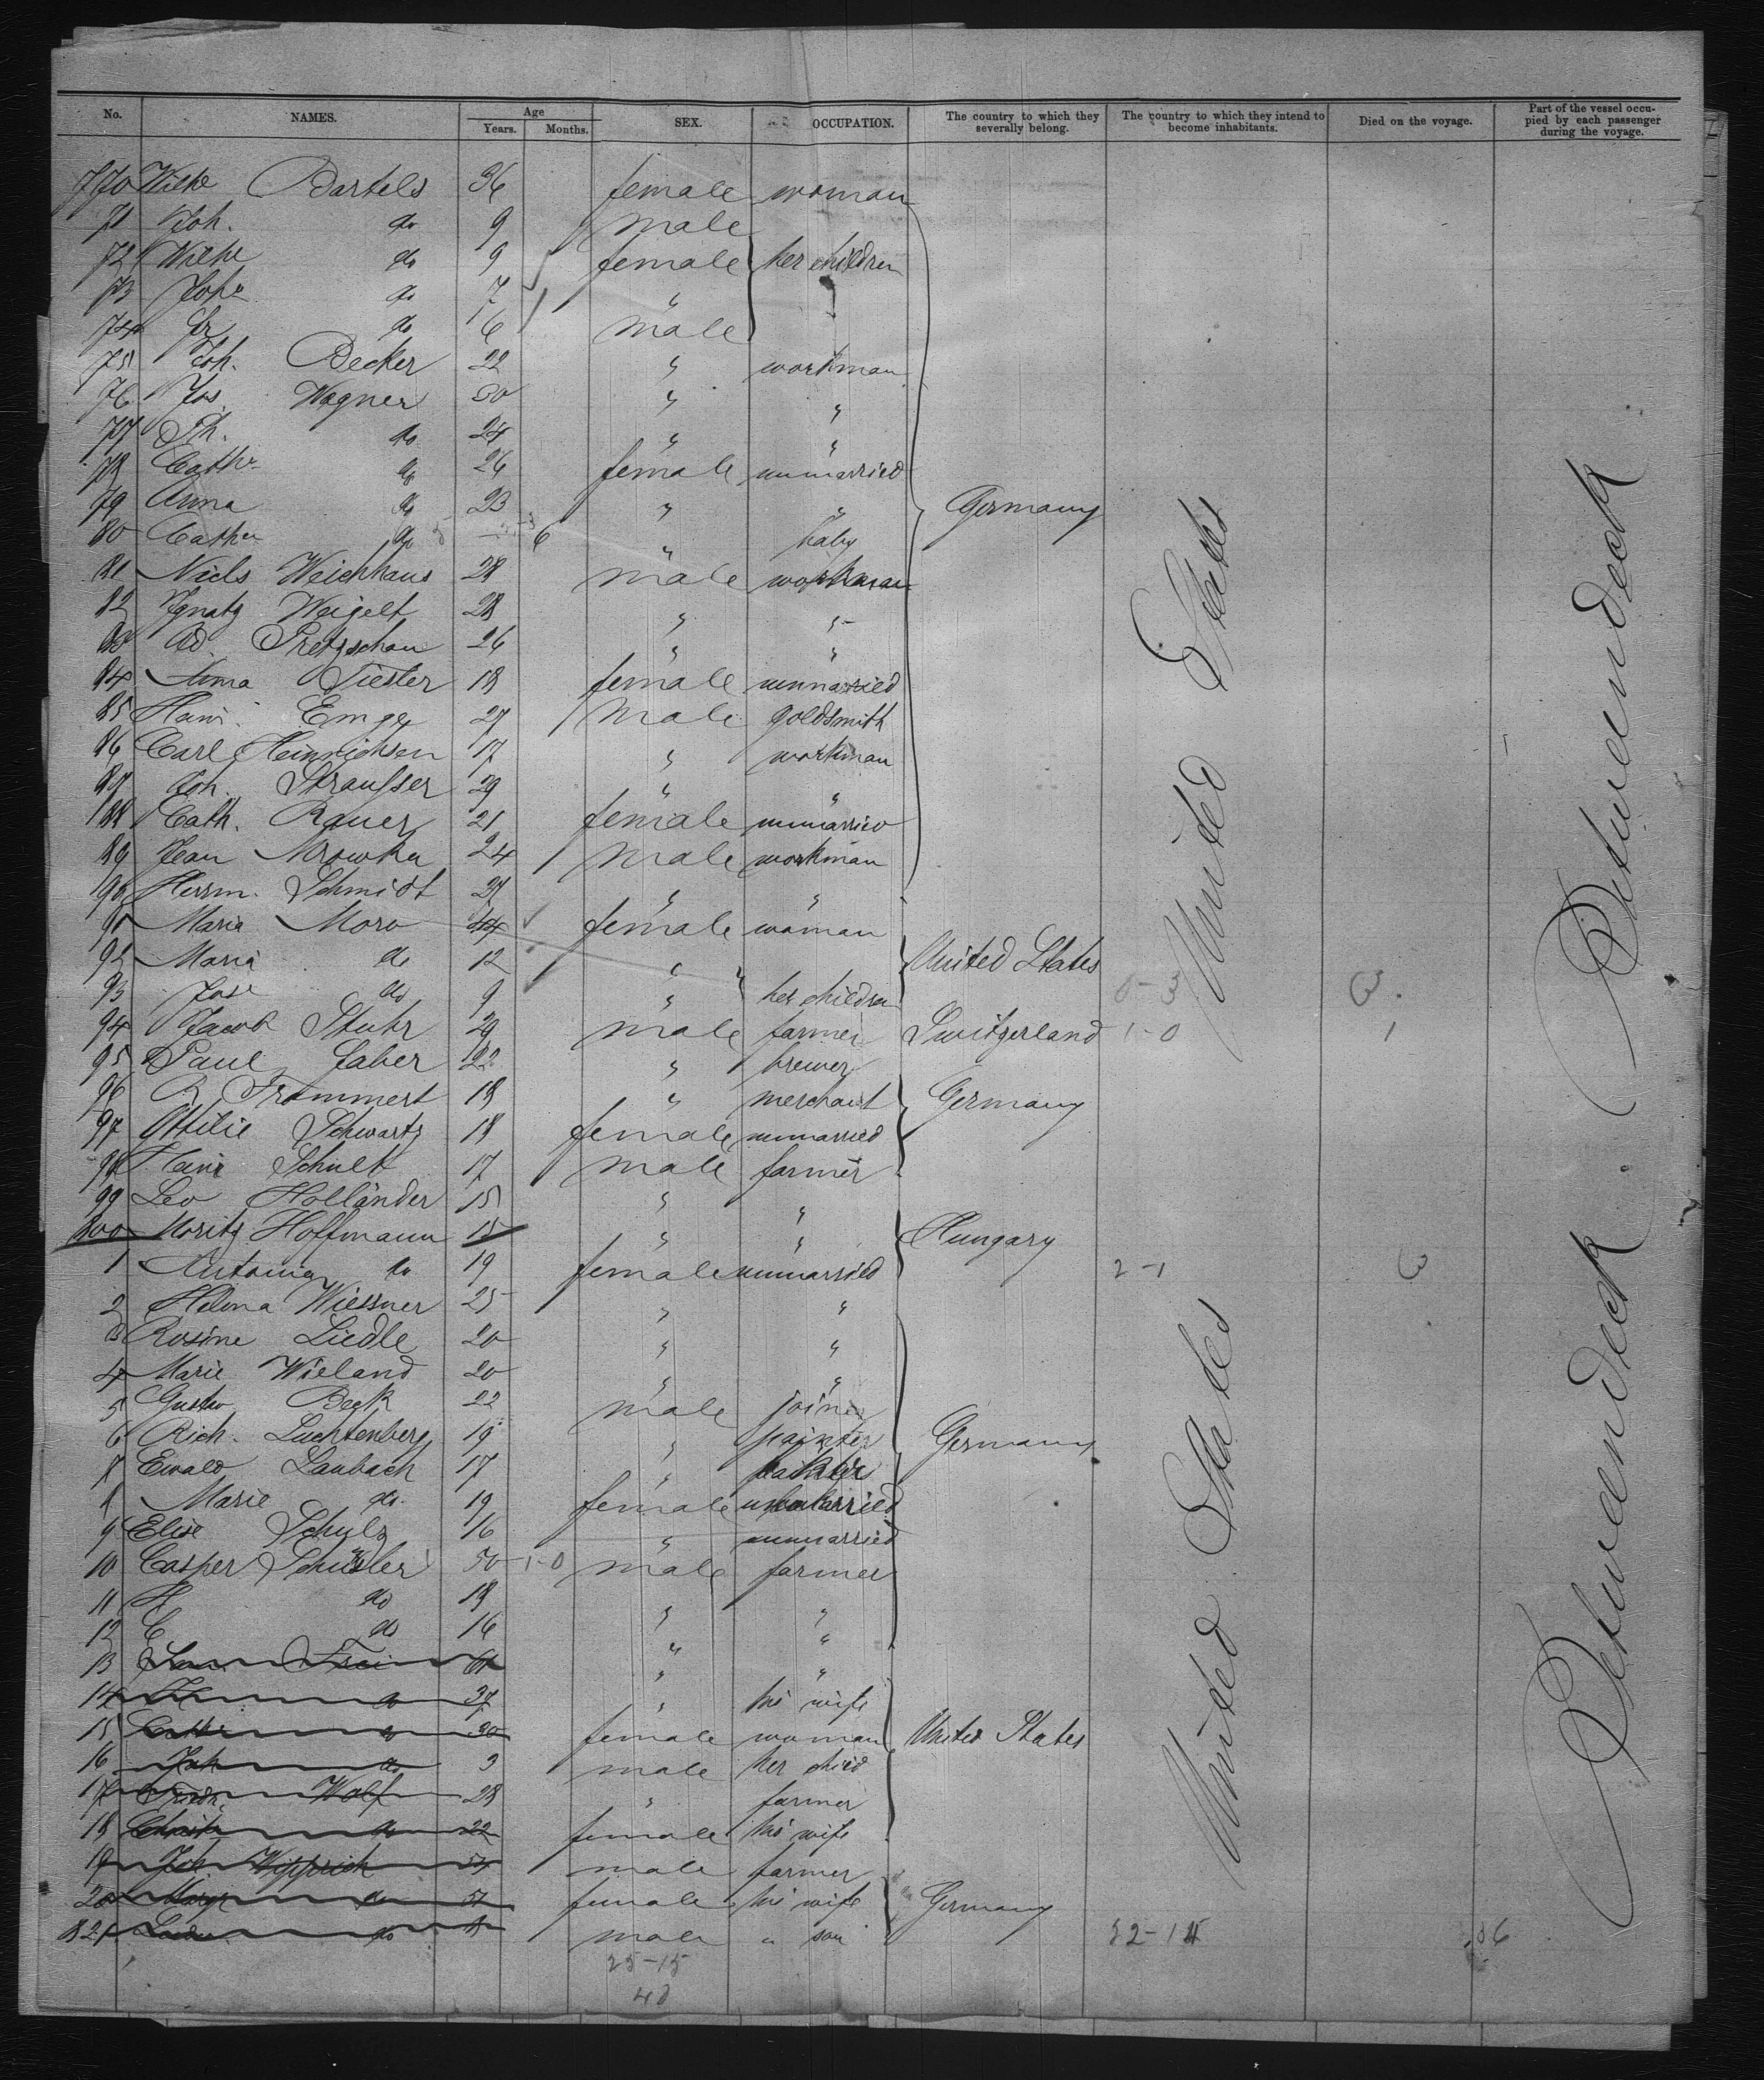 No. NAMES. Age Years. Months. SEX. OCCUPATION. The country to which they severally belong. The country to which they intend to become inhabitants. Died on the voyage. Part of the vessel occupied by each passenger during the voyage.
770 Wilhe Bartels 36 female woman
71 Joh. do 9 male
72 Wilhe do 9 female her children
73 Joha do 7 "
74 Fr do 6 male
75 Joh. Becker 22 " workman
76 Jos. Wagner 50 " "
77 Ph. do 24 " "
78 Cathe do 26 female unmarried
79 Anna do 23 " " Germany
80 Cathe do 6 " baby
81 Niels Weichhaus 28 male workman
82 Ignatz Weigelt 28 " "
83 Ad. Pretzschau 26 " "
84 Anna Tiester 18 female unmarried
85 Heinr. Emge 27 male goldsmith
86 Carl Heinrichsen 17 " workman
87 Joh. Strausser 29 " "
88 Cath. Rauer 21 female unmarried
89 Jean Mrowka 24 male workman
90 Herrm. Schmidt 27 " "
91 Maria Moro 44 female woman
92 Maria do 12 " United States
93 Jose do 9 " her children 0-3 3
94 Jacob Stuhr 29 male farmer Switzerland 1-0 1
95 Paul Faber 22 " brewer
96 R. Frommert 18 " merchant Germany
97 Ottilie Schwartz 18 female unmarried
98 Heinr Schult 17 male farmer
99 Leo Holländer 15 " "
800 Moritz Hoffmann 15 " " Hungary
1 Antonia do 19 female unmarried 2-1 3
2 Helena Wiessner 25 " "
3 Rosine Liedle 20 " "
4 Marie Wieland 20 " "
5 Gustav Beck 22 male joiner
6 Rich. Luchtenberg 19 " painter Germany
7 Ewald Laubach 17 "
8 Marie do. 19 female unmarried
9 Elise Schulz 16 " unmarried
10 Casper Schüsler 50 1-0 male farmer
11 H do 18 " "
12 C do 16 " "
13 61 " "
14 do 37 " his wife
15 do 30 female woman United States
16 Joh do 3 male her child
17 Friedr. Wolf 28 " farmer
18 Christ do 22 female his wife
19 Joh. Wipprich 54 male farmer
20 Margr do 51 female his wife Germany
821 do male " son 52-14 36
25-15
40
United States
United States
Betweendeck
Betweendeck